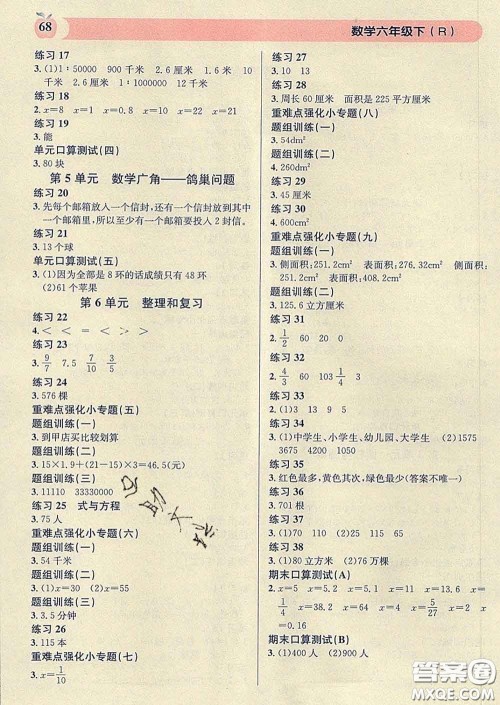 68
数学六年级下(R)
练习 17
3. (1)1∶50000 900 千米 2.6 厘米 10
千米 12 千米 2.6 厘米 1200 千米
练习 18
2. x=8 x=1 x=0.8 x=10 x=1.1
练习 19
3. 能
单元口算测试(四)
3. 80 块
第 5 单元 数学广角——鸽巢问题
练习 20
3. 先每个邮箱放入一个信封,还有一个信封放到其
中一个邮箱里,所以至少有一个邮箱要投入 2 封信。
练习 21
3. 13 个球
单元口算测试(五)
3. (1)因为全部是 8 环的话成绩只有 48 环
(2)61 个苹果
第 6 单元 整理和复习
练习 22
4. < < = < > <
练习 23
3. 9/7 7.5 7/10 3/5
练习 24
3. 576 棵
重难点强化小专题(五)
题组训练(一)
3. 到甲店买比较划算
题组训练(二)
3. 15×1.9+(21-15)×3=46.5(元)
题组训练(三)
3. 11110 33330000
练习 25 式与方程
3. 75 人
重难点强化小专题(六)
题组训练(一)
3. 54 千米
题组训练(二)
3. (1)x=30 (2)x=55
题组训练(三)
3. 50 千米
练习 26
3. 115 本
重难点强化小专题(七)
3. x=1/10
练习 27
3. 10 13
练习 28
3. 周长 60 厘米 面积是 225 平方厘米
重难点强化小专题(八)
题组训练(一)
3. 54dm²
题组训练(二)
4. 260dm²
练习 29
3. 45 厘米
练习 30
4. 600cm²
重难点强化小专题(九)
题组训练(一)
3. 侧面积:251.2cm² 表面积:251.2cm²
题组训练(二)
3. 125.6 立方厘米
练习 31
2. 1/2 60 20 0
练习 32
2. 4/3 60 100 103 1/4 3
练习 33
3. (1)13 4 9 5
练习 34
3. (1)中学生、小学生、幼儿园、大学生 (2)1575
3675 4200 1050
练习 35
3. 红色最多,黄色其次,绿色最少(答案不唯一)
练习 36
3. 701 根
练习 37
3. (1)5 (2)9
练习 38
3. (1)80 立方米 (2)76 万棵
期末口算测试(A)
2. x=5 x=5.2 x=5.2 x=11 x=
1/4 x=38 x=4 x=5/27 x=2
x=2
期末口算测试(B)
3. (1)400 人 (2)900 人
答案圈
MXQE.COM